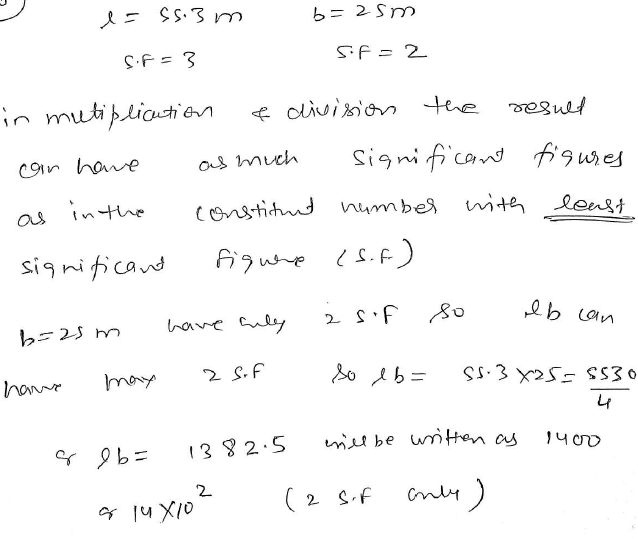 l = 55.3 m b = 25m
S.F = 3 S.F = 2
in mutiplication & division the result
can have as much significant figures
as in the constitut number with least
significant figure (S.F)
b=25 m have only 2 S.F so lb can
have max 2 S.F So lb = 55.3 X25 = 5530/4
or lb = 1382.5 will be written as 1400
or 14 X10² (2 S.F only)